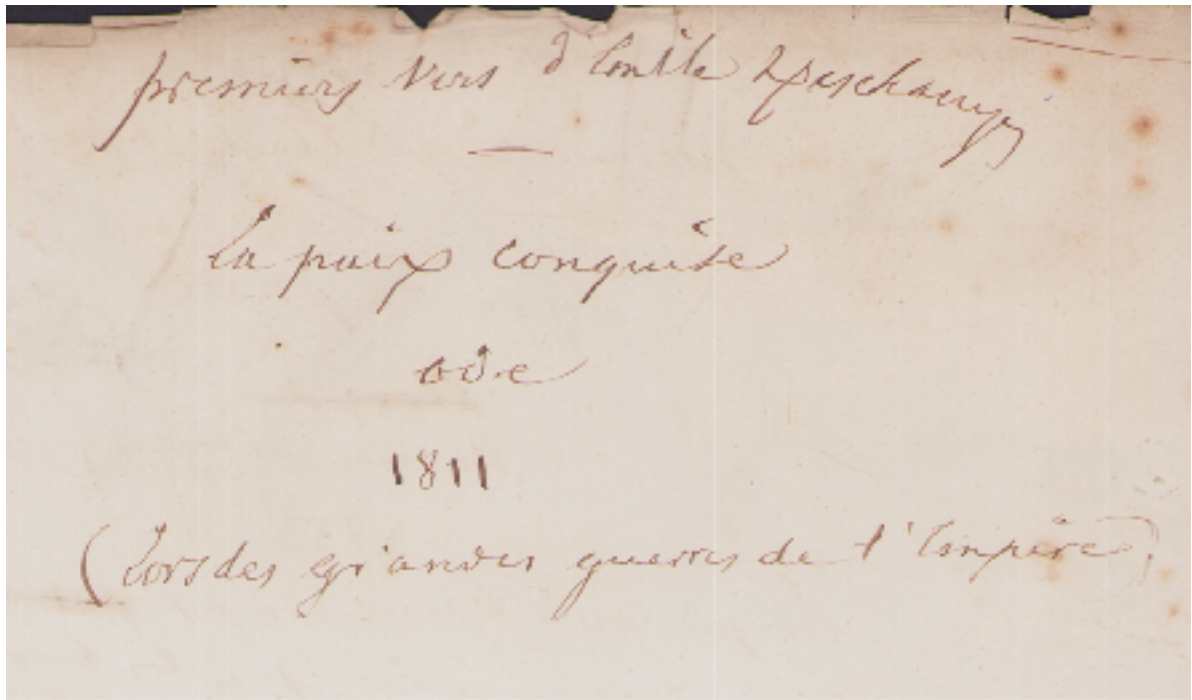 premiers vers d'Emile Deschamps
La paix conquise
ode
1811
(Lors des grandes guerres de l'Empire)